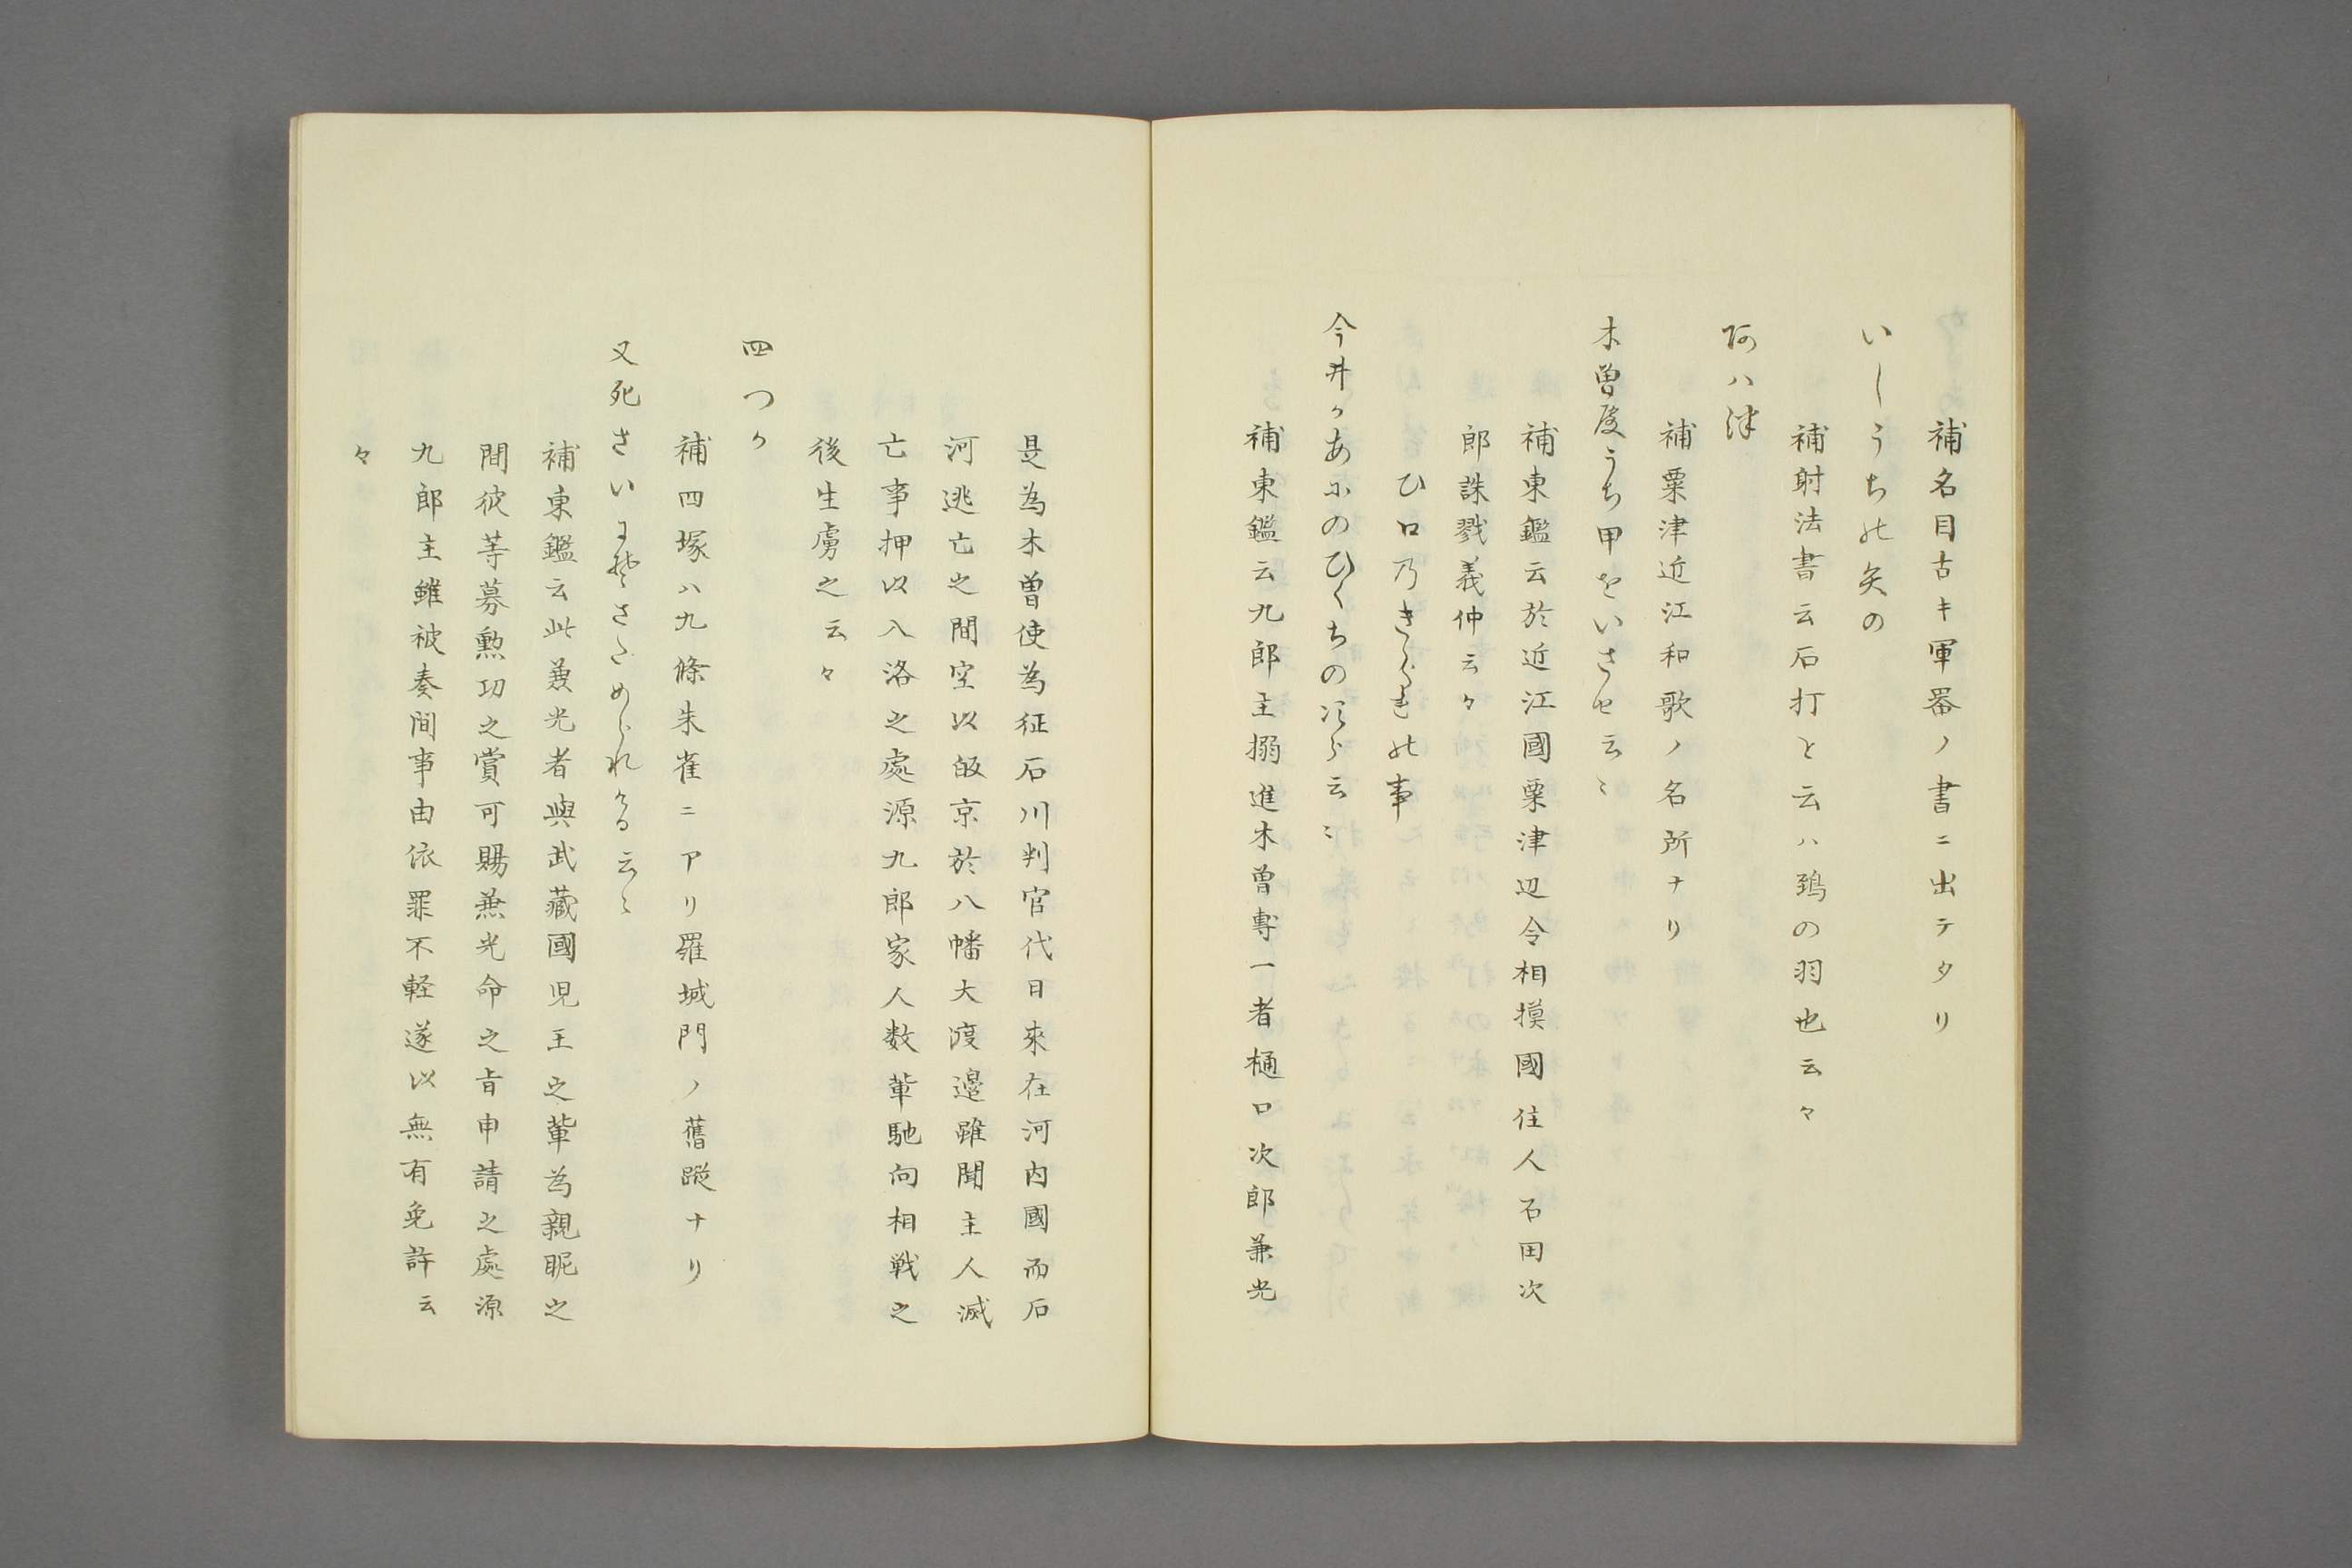 補名目古キ軍器ノ書ニ出テタリ
いしうちの矢の
補射法書云石打と云ハ鵄の羽也云々
阿ハ津
補粟津近江和歌ノ名所ナリ
木曽殿うち甲をいさせ云〻
補東鑑云於近江國粟津辺令相摸國住人石田次
郎誅戮義仲云々
ひ口乃きられの事
今井かあにのひくちの次らう云〻
補東鑑云九郎主搦進木曽専一者樋口次郎兼光
是為木曽使為征石川判官代日來在河内國而石
河逃亡之間空以皈京於八幡大渡邉雖聞主人滅
亡事押以入洛之處源九郎家人数輩馳向相戦之
後生虜之云々
四つか
補四塚ハ九條朱雀ニアリ羅城門ノ舊蹤ナリ
又死さいにそさためられける云〻
補東鑑云此兼光者與武藏國児王之輩為親眤之
間彼等募勲功之賞可賜兼光命之旨申請之處源
九郎主雖被奏聞事由依罪不軽遂以無有免許云
々